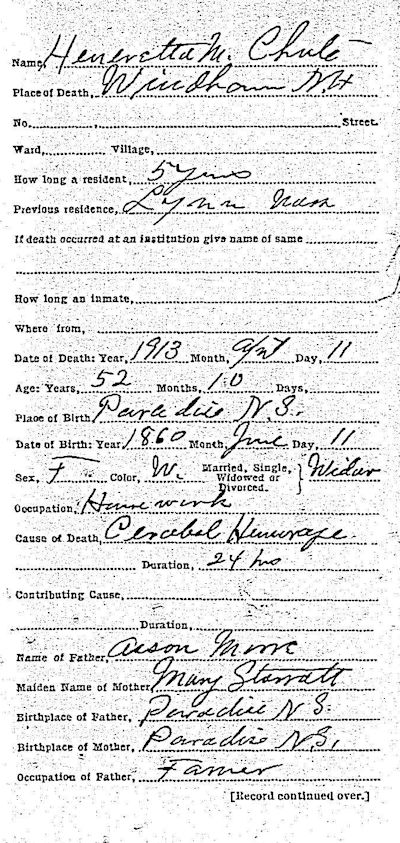 Name, Heneretta M. Chute
Place of Death, Windham N.H
No. , Street.
Ward, Village,
How long a resident, 5 yrs
Previous residence, Lynn Mass
If death occurred at an institution give name of same
How long an inmate,
Where from,
Date of Death: Year, 1913 Month, Day, 11
Age: Years, 52 Months, 10 Days,
Place of Birth, Paradise N.S.
Date of Birth: Year, 1860 Month, June Day, 11
Sex, F Color, W. Married, Single, Widowed or Divorced. } Widow
Occupation, House work
Cause of Death, Cerebal Hemorage.
Duration, 24 hrs
Contributing Cause,
Duration,
Name of Father,
Maiden Name of Mother, Mary Starratt
Birthplace of Father, Paradise N S.
Birthplace of Mother, Paradise N.S,
Occupation of Father, Farmer
[Record continued over.]